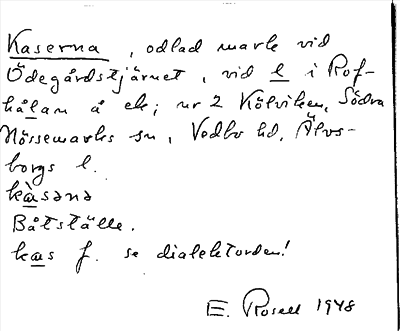 Kaserna, odlad mark vid
Ödegårdstjärnet, vid l i Rof-
hålan å ek; nr 2 Kölviken, Södra
Nössemarks sn, Vedbo hd, Älvs-
borgs l.
kæ̀sənə
Båtställe.
kæs f. se dialektorden!
E. Rosell 1948